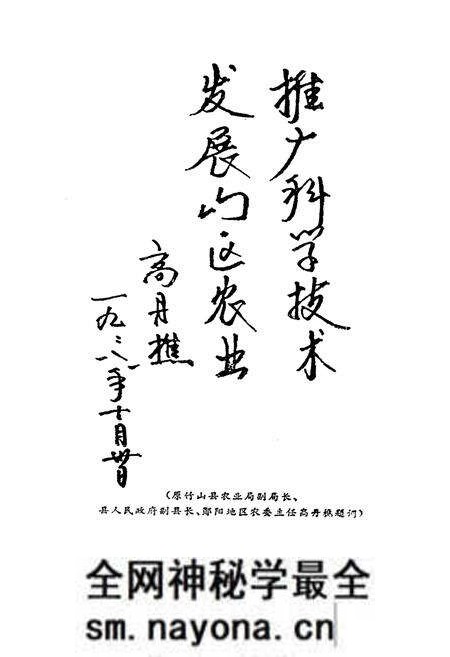 推广科学技术
发展山区农业
高丹樵
一九八八年十月廿日
(原竹山县农业局副局长、
县人民政府副县长、郧阳地区农委主任高丹樵题词)
全网神秘学最全
sm.nayona.cn